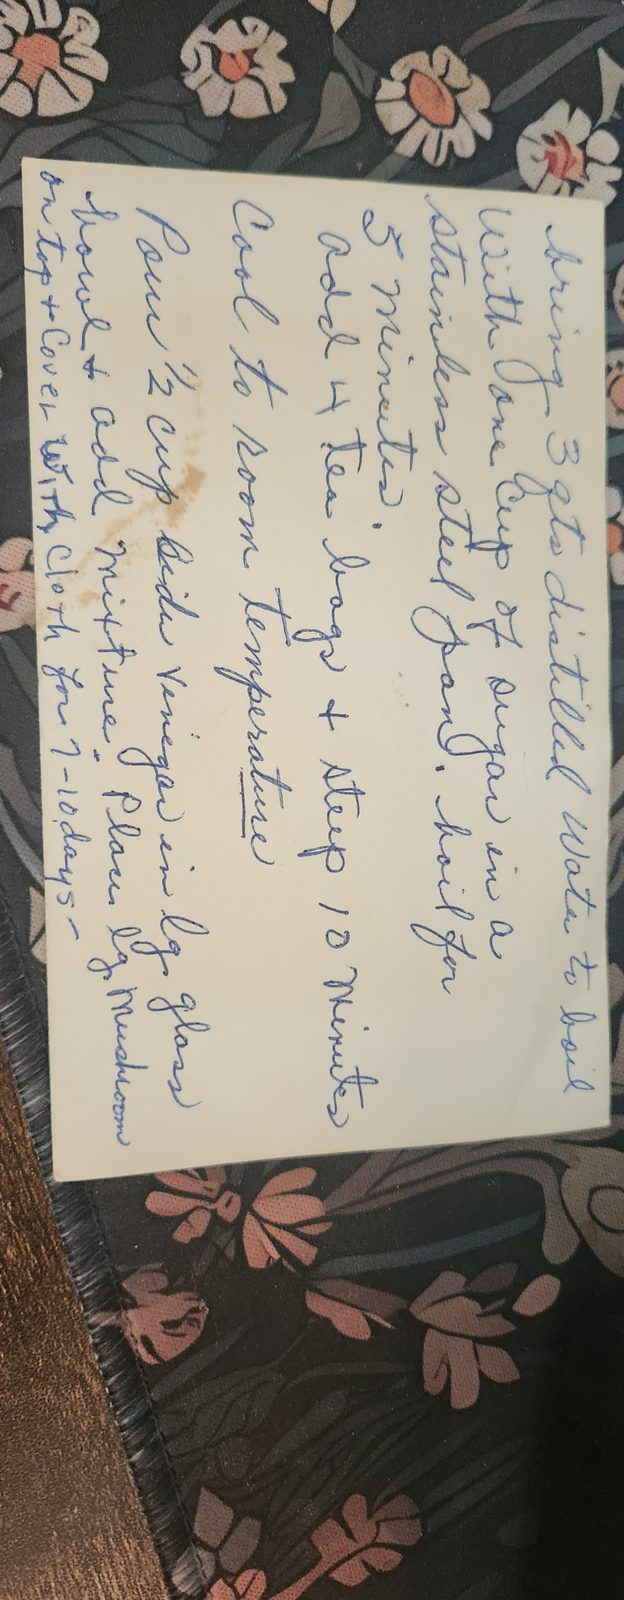 bring 3 qts distilled Water to boil
With one Cup of sugar in a
stainless steel pan. boil for
5 Minutes
add 4 tea bags + steep 10 Minutes
Cool to room temperature
Pour 1/2 cup Sider Vinegar in lg. glass
bowl + add mixture. Place lg Mushroom
on top + Cover With Cloth for 7-10 days -